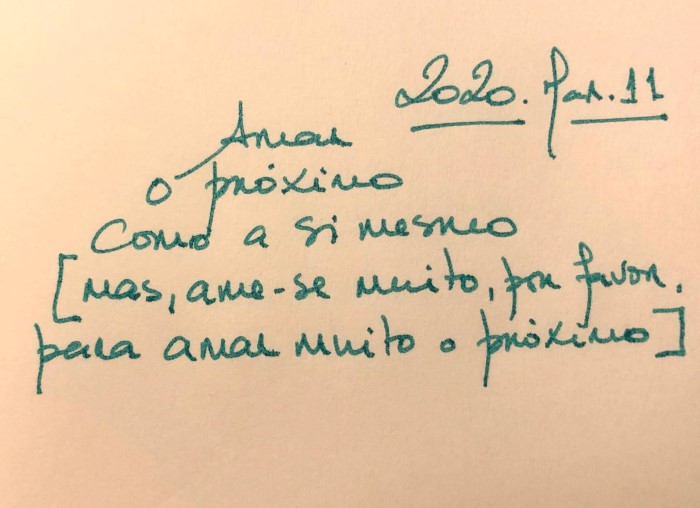 2020. Mar. 11
Amar
o próximo
Como a si mesmo
[mas, ame-se muito, por favor,
para amar muito o próximo]